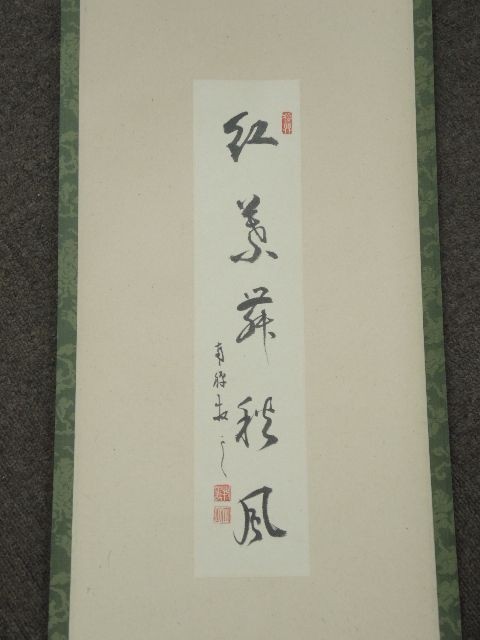 紅葉舞秋風